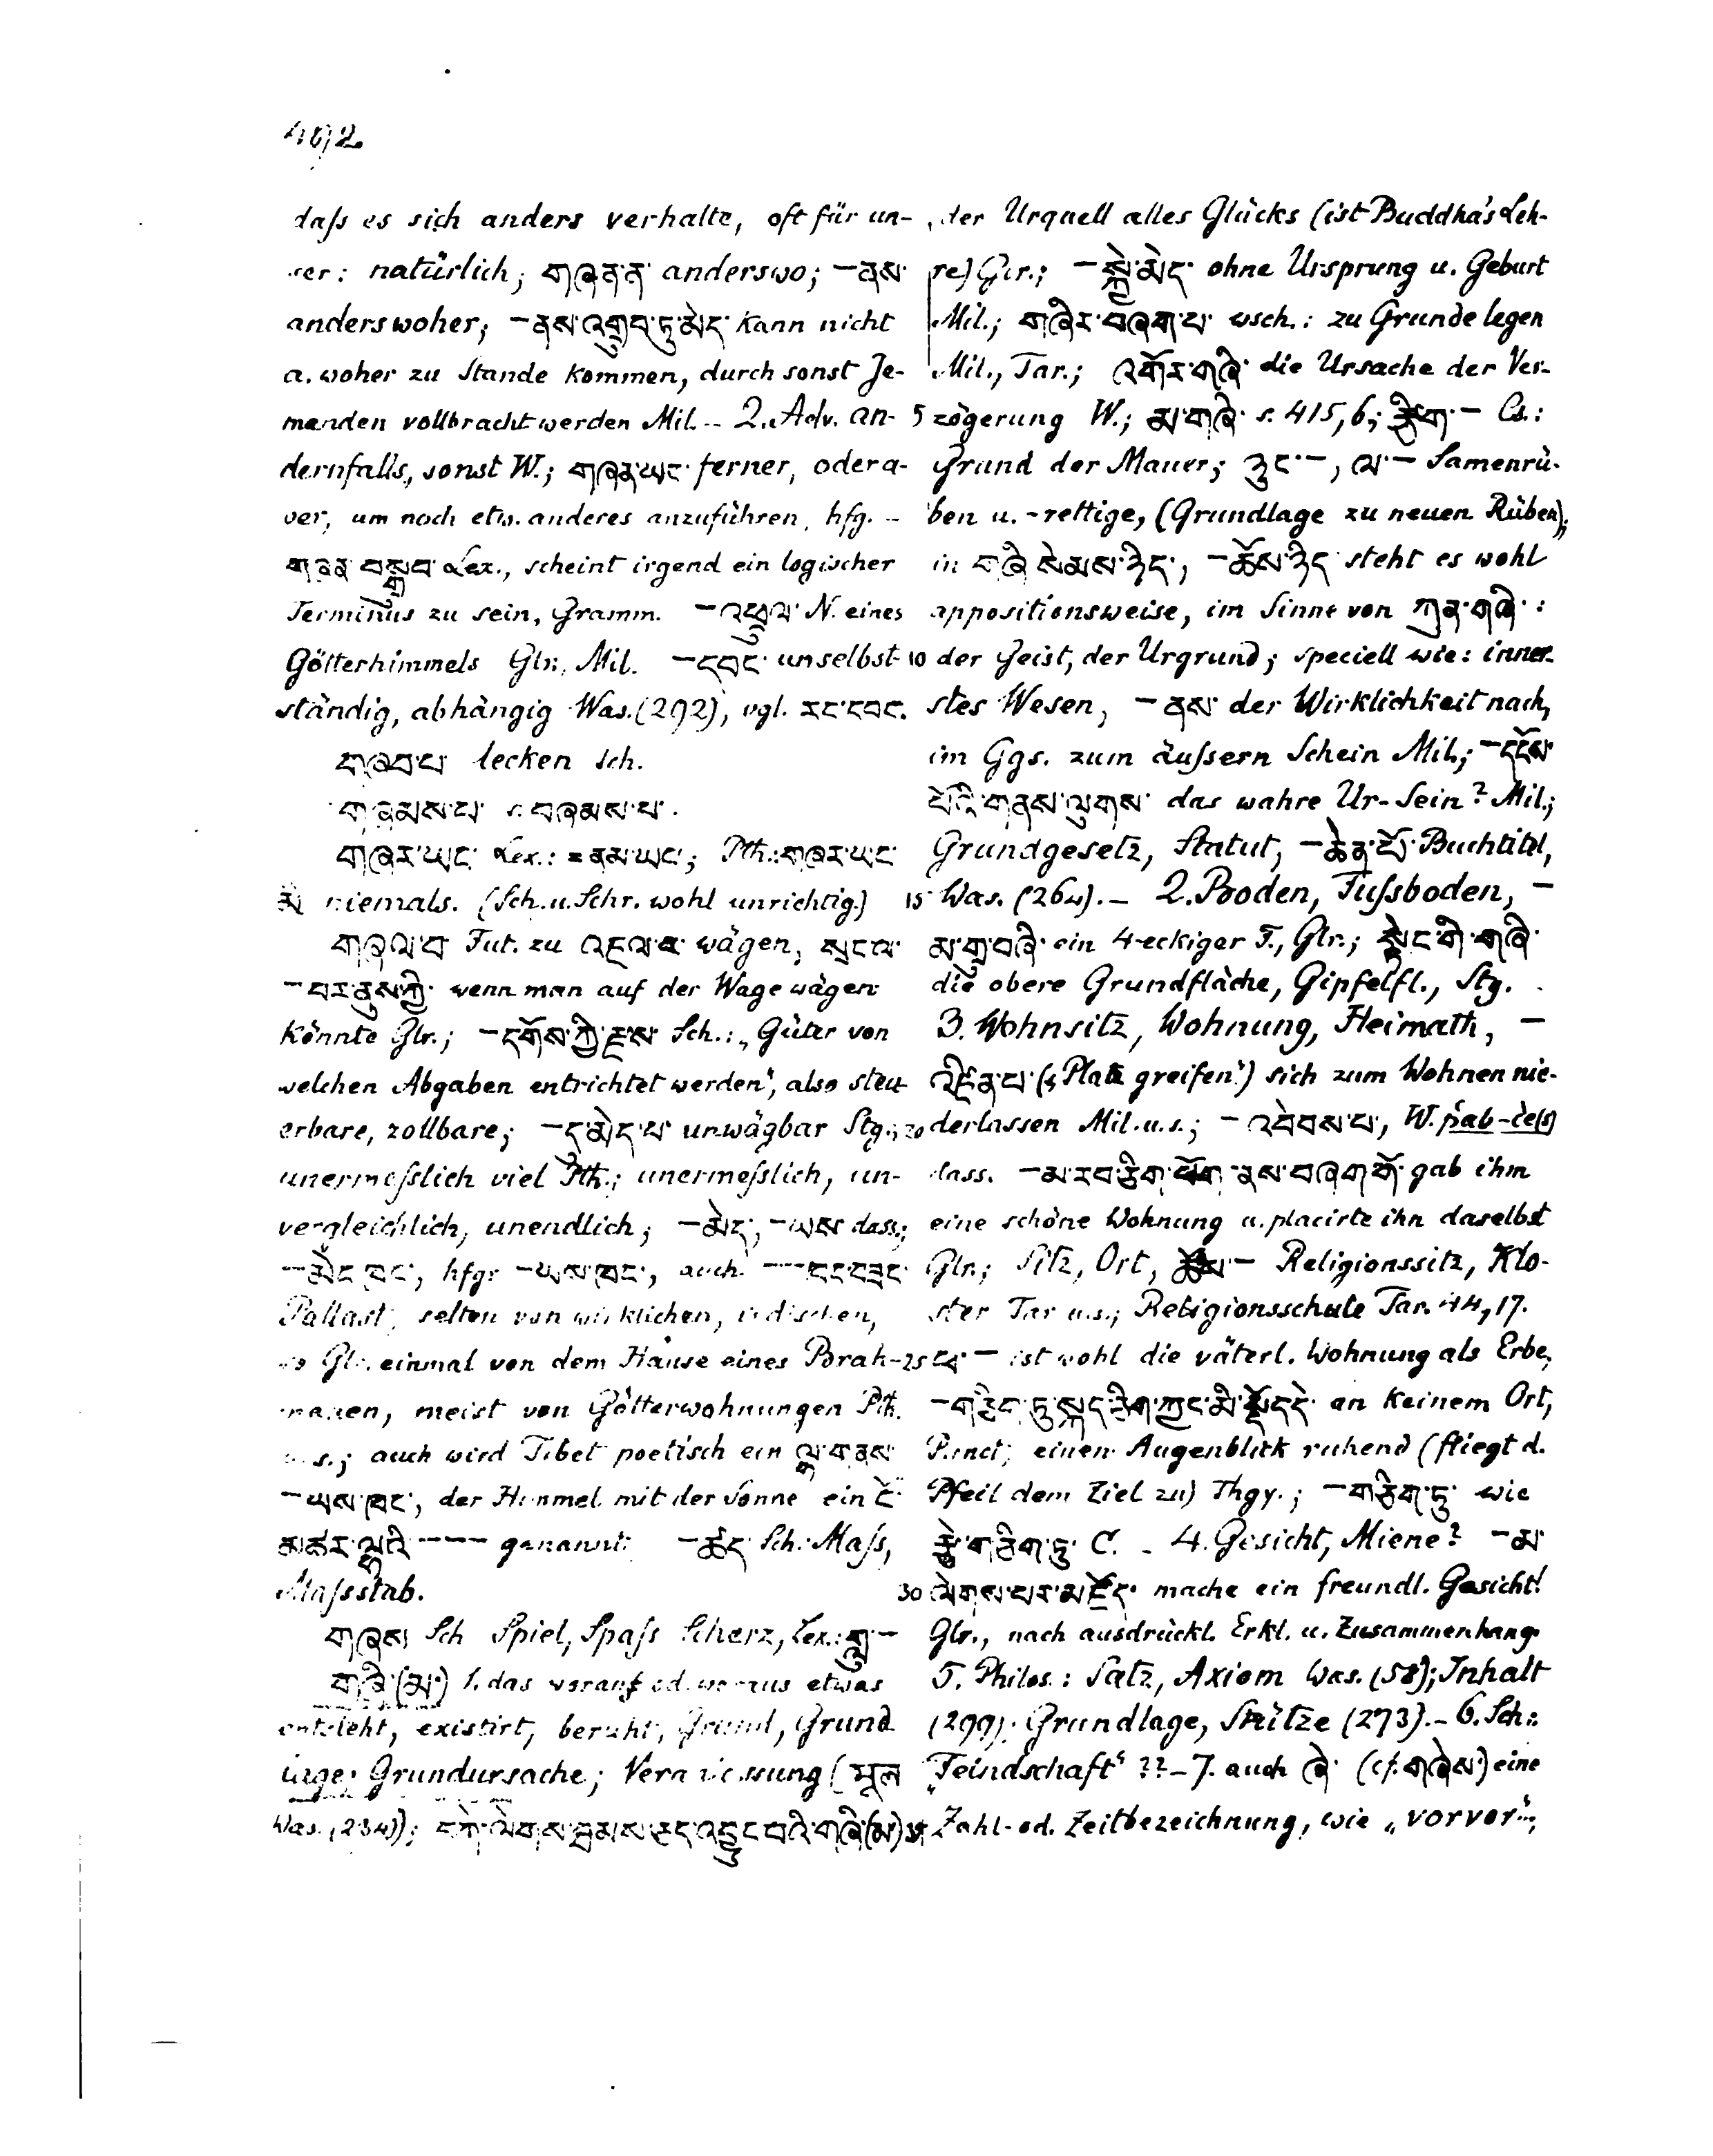 492
daſs es sich anders verhalte, oft für un-
ser: natürlich; གཞན་ན་ anderswo; –ནས་
anderswoher; –ནས་འགྲུབ་ཏུ་མེད་ kann nicht
a. woher zu Stande kommen, durch sonst Je-
manden vollbracht werden Mil. – 2. Adv. an-
dernfalls, sonst W.; གཞན་ཡང་ ferner, oder a-
ver, um noch etw. anderes anzuführen, hfg. –
གཞན་བསྒྲུབ་ Lex., scheint irgend ein logischer
Terminus zu sein, Gramm. –འཕྲུལ་ N. eines
Götterhimmels Glr., Mil. –དབང་ unselbst-
ständig, abhängig Was. (292), vgl. རང་དབང.
གཞབ་པ་ lecken Sch.
གཞམས་པ་ s. བཞམས་པ་.
གཞར་ཡང་ Lex.: = ནམ་ཡང་; Pth.: གཞར་ཡང་
མི niemals. (Sch. u. Schr. wohl unrichtig.)
གཞལ་བ་ Fut. zu འཇལ་བ་ wägen, སྲང་ལ་
–བར་ནུས་ཀྱི་ wenn man auf der Wage wägen
könnte Glr.; –དགོས་ཀྱི་རྫས་ Sch.: „Güter von
welchen Abgaben entrichtet werden", also steu-
erbare, zollbare; –དུ་མེད་པ་ unwägbar Stg.;
unermeſslich viel Pth.; unermeſslich, un-
vergleichlich, unendlich; –མེད་, –ཡས་ dass.;
–མེད་ཁང་, hfgr –ཡས་ཁང་, auch
Pallast, selten von wirklichen, irdischen,
so Glr. einmal von dem Hause eines Brah-
manen, meist von Götterwohnungen Pth.
u. s.; auch wird Tibet poetisch ein ལྷ་གནས་
–ཡས་ཁང་, der Himmel mit der Sonne ein ངོ་
མཚར་ལྷའི –––– genannt. –ཚད་ Sch.: Maſs,
Maſsstab.
གཞས་ Sch Spiel, Spaſs Scherz, Lex.: གླུ་–
གཞི་(མ་) 1. das worauf od. woraus etwas
entsteht, existirt, beruht, Grund, Grund
lage, Grundursache; Veranlassung (मूल
Was. (234)); དགེ་ལེགས་ཐམས་ཅད་འབྱུང་བའི་གཞི་(མ་)
der Urquell alles Glücks (ist Buddha's Leh-
re) Glr.; –སྐྱེ་མེད་ ohne Ursprung u. Geburt
Mil.; གཞིར་བཞག་པ་ wsch.: zu Grunde legen
Mil., Tar.; འགོར་གཞི་ die Ursache der Ver-
5 zögerung W.; མ་གཞི་ s. 415, 6; རྩིག་– Cs.:
Grund der Mauer; ཉུང་–, ལ་– Samenrü-
ben u. -rettige, (Grundlage zu neuen Rüben);
in གཞི་སེམས་ཉིད་, –ཆོས་ཉིད་ steht es wohl
appositionsweise, im Sinne von ཀུན་གཞི་:
10 der Geist, der Urgrund; speciell wie: inner-
stes Wesen, –ནས་ der Wirklichkeit nach,
im Ggs. zum äuſsern Schein Mil.; –དངོས་
པོའི་གནས་ལུགས་ das wahre Ur-Sein? Mil.;
Grundgesetz, Statut, –ཆེན་པོ་ Buchtitel,
15 Was. (264). – 2. Boden, Fuſsboden, –
མ་གྲུ་བཞི་ ein 4-eckiger F., Glr.; སྟེང་གི་གཞི་
die obere Grundfläche, Gipfelfl., Stg.
3. Wohnsitz, Wohnung, Heimath, –
འཛིན་པ་ („Platz greifen") sich zum Wohnen nie-
20 derlassen Mil. u. s.; –འབེབས་པ་, W. pab-če(s)
dass. –མ་རབ་ཅིག་ཕོག་ནས་བཞག་གོ་ gab ihm
eine schöne Wohnung u. placirte ihn daselbst
Glr.; Sitz, Ort, ཆོས་– Religionssitz, Klo-
ster Tar u. s.; Religionsschule Tar. 44, 17.
25 ཕ་– ist wohl die väterl. Wohnung als Erbe,
–གཅིག་ཏུ་སྐད་ཅིག་ཀྱང་མི་སྡོད་དེ་ an keinem Ort,
Punct, einen Augenblick ruhend (fliegt d.
Pfeil dem Ziel zu) Thgy.; –གཅིག་ཏུ་ wie
རྩེ་གཅིག་ཏུ་ C. – 4. Gesicht, Miene? –མ་
30 ལེགས་པར་མཛོད་ mache ein freundl. Gesicht!
Glr., nach ausdrückl. Erkl. u. Zusammenhang.
5. Philos.: Satz, Axiom Was. (58); Inhalt
(299). Grundlage, Stütze (273). – 6. Sch.:
„Feindschaft" ?? – 7. auch ཞེ་ (cf. གཞེས་) eine
Zahl- od. Zeitbezeichnung, wie „vorvor",